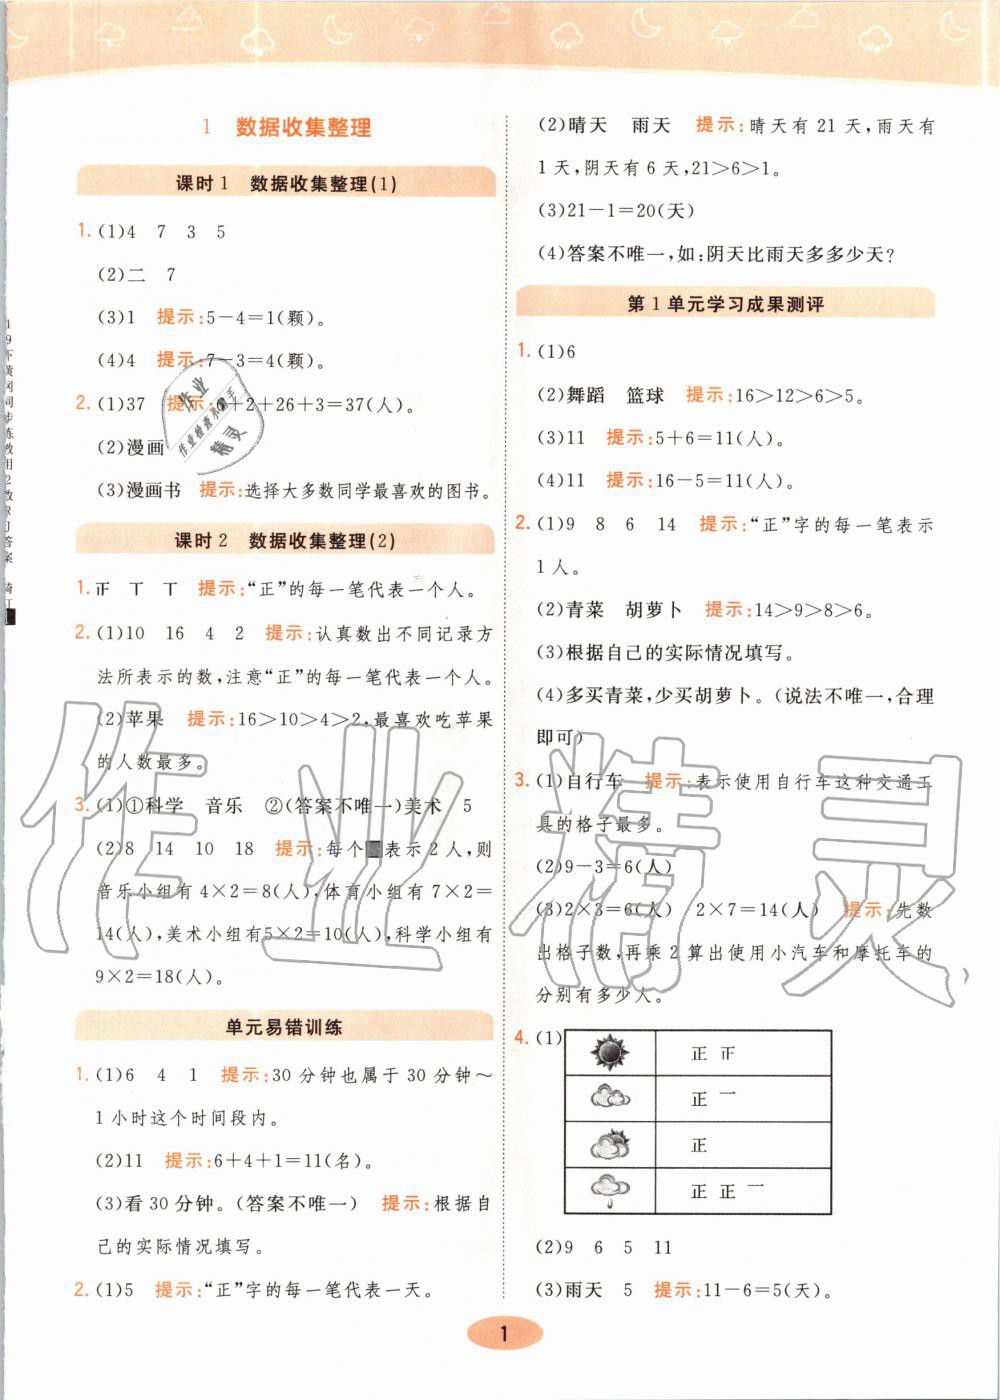 1 数据收集整理
课时1 数据收集整理(1)
1. (1)4 7 3 5
(2)二 7
(3)1 提示:5－4＝1(颗)。
(4)4 提示:7－3＝4(颗)。
2. (1)37 提示:6＋2＋26＋3＝37(人)。
(2)漫画
(3)漫画书 提示:选择大多数同学最喜欢的图书。
课时2 数据收集整理(2)
1. 提示:“正”的每一笔代表一个人。
2. (1)10 16 4 2 提示:认真数出不同记录方
法所表示的数,注意“正”的每一笔代表一个人。
(2)苹果 提示:16＞10＞4＞2,最喜欢吃苹果
的人数最多。
3. (1)①科学 音乐 ②(答案不唯一)美术 5
(2)8 14 10 18 提示:每个 表示2人,则
音乐小组有4×2＝8(人),体育小组有7×2＝
14(人),美术小组有5×2＝10(人),科学小组有
9×2＝18(人)。
单元易错训练
1. (1)6 4 1 提示:30分钟也属于30分钟～
1小时这个时间段内。
(2)11 提示:6＋4＋1＝11(名)。
(3)看30分钟。(答案不唯一) 提示:根据自
己的实际情况填写。
2. (1)5 提示:“正”字的每一笔代表一天。
(2)晴天 雨天 提示:晴天有21天,雨天有
1天,阴天有6天,21＞6＞1。
(3)21－1＝20(天)
(4)答案不唯一,如:阴天比雨天多多少天?
第1单元学习成果测评
1. (1)6
(2)舞蹈 篮球 提示:16＞12＞6＞5。
(3)11 提示:5＋6＝11(人)。
(4)11 提示:16－5＝11(人)。
2. (1)9 8 6 14 提示:“正”字的每一笔表示
1人。
(2)青菜 胡萝卜 提示:14＞9＞8＞6。
(3)根据自己的实际情况填写。
(4)多买青菜,少买胡萝卜。(说法不唯一,合理
即可)
3. (1)自行车 提示:表示使用自行车这种交通工
具的格子最多。
(2)9－3＝6(人)
(3)2×3＝6(人) 2×7＝14(人) 提示:先数
出格子数,再乘2算出使用小汽车和摩托车的
分别有多少人。
4. (1)
正
正 一
正
正 正 一
(2)9 6 5 11
(3)雨天 5 提示:11－6＝5(天)。
1
作业精灵